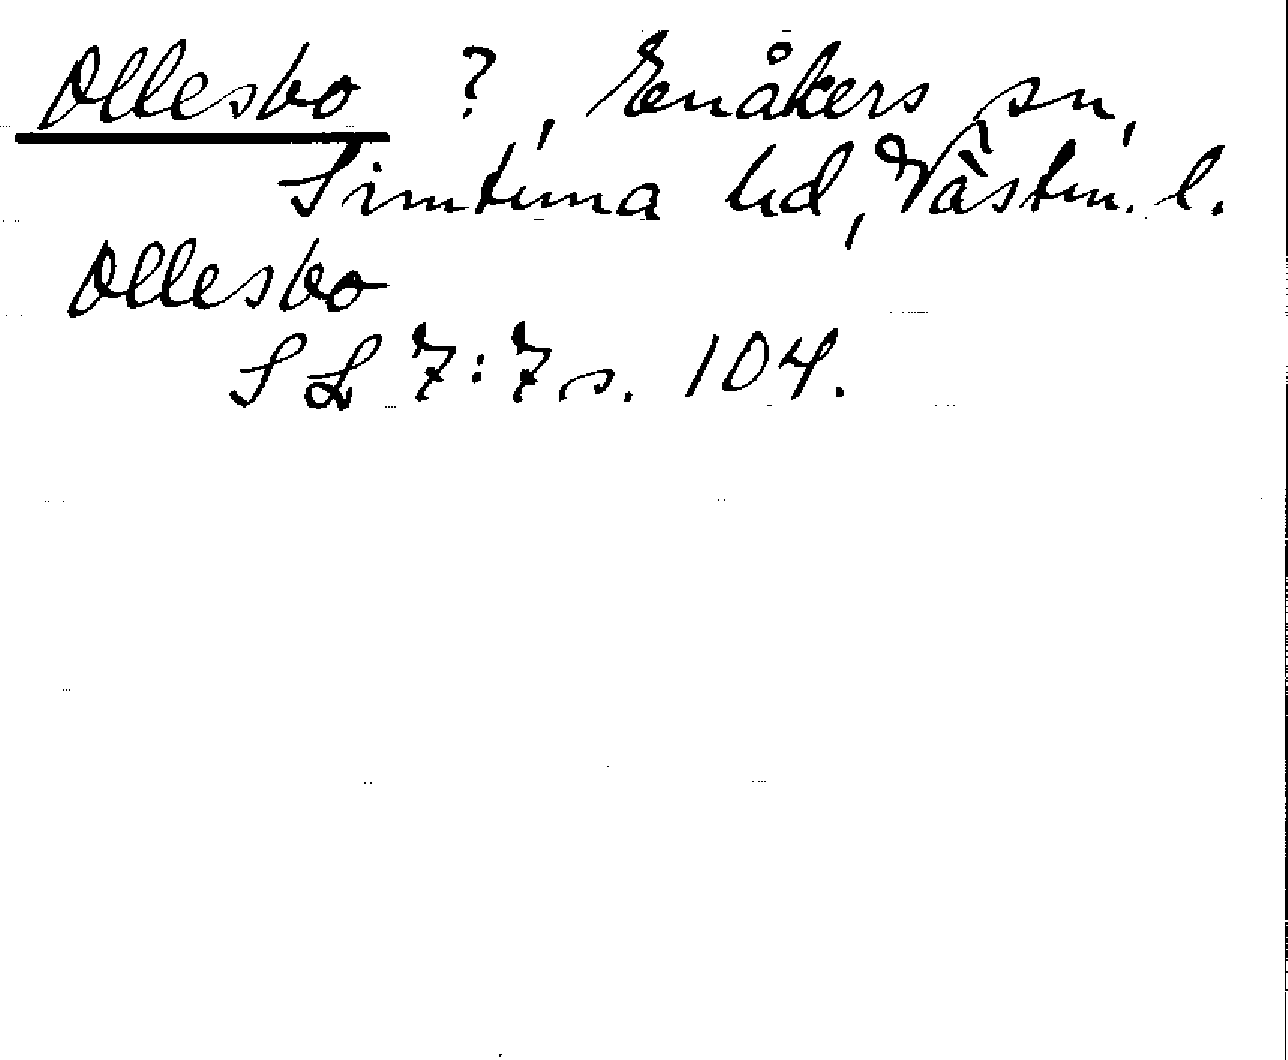 Ollesbo ?, Enåkers sn,
Simtuna hd, Västm. l.
Ollesbo
SL 7:7 s. 104.